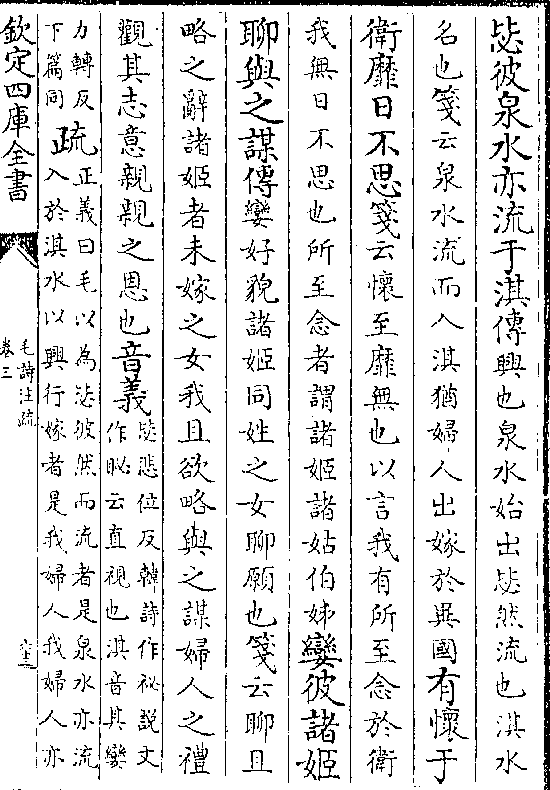 毖彼泉水亦流于淇傳興也泉水始出毖然流也淇水
名也箋云泉水流而入淇猶婦人出嫁於異國有懷于
衛靡日不思箋云懷至靡無也以言我有所至念於衛
我無日不思也所至念者謂諸姬諸姑伯姊孌彼諸姬
聊與之謀傳孌好貌諸姬同姓之女聊願也箋云聊且
略之辭諸姬者未嫁之女我且欲略與之謀婦人之禮
觀其志意親親之恩也音義毖悲位反韓詩作祕説文
作䀣云直視也淇音其孌
力轉反
下篇同
疏正義曰毛以為毖彼然而流者是泉水亦流
入於淇水以興行嫁者是我婦人我婦人亦
欽定四庫全書
毛詩注疏
卷三